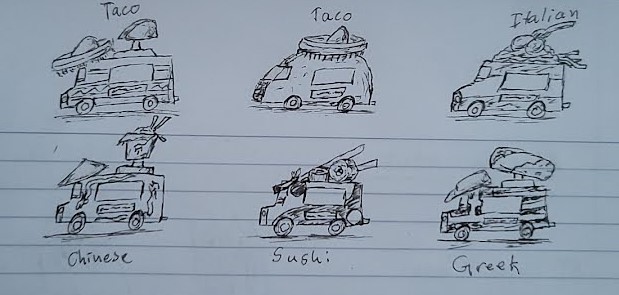 Taco
Taco
Italian
Chinese
Sushi
Greek